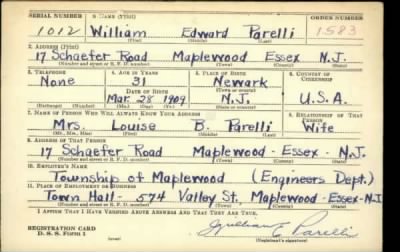 SERIAL NUMBER 1. NAME (Print) ORDER NUMBER
1012 William Edward Parelli 1583
(First) (Middle) (Last)
2. ADDRESS (Print)
17 Schaefer Road Maplewood Essex N.J.
(Number and street or R. F. D. number) (Town) (County) (State)
3. TELEPHONE 4. AGE IN YEARS 5. PLACE OF BIRTH 6. COUNTRY OF CITIZENSHIP
None 31 Newark
DATE OF BIRTH (Town or county)
Mar. 28 1909 N.J. U.S.A.
(Exchange) (Number) (Mo.) (Day) (Yr.) (State or country)
7. NAME OF PERSON WHO WILL ALWAYS KNOW YOUR ADDRESS 8. RELATIONSHIP OF THAT PERSON
Mrs. Louise B. Parelli Wife
(Mr., Mrs., Miss) (First) (Middle) (Last)
9. ADDRESS OF THAT PERSON
17 Schaefer Road Maplewood - Essex - N.J.
(Number and street or R. F. D. number) (Town) (County) (State)
10. EMPLOYER'S NAME
Township of Maplewood (Engineers Dept.)
11. PLACE OF EMPLOYMENT OR BUSINESS
Town Hall - 574 Valley St., Maplewood - Essex - N.J
(Number and street or R. F. D. number) (Town) (County) (State)
I AFFIRM THAT I HAVE VERIFIED ABOVE ANSWERS AND THAT THEY ARE TRUE.
REGISTRATION CARD William E Parelli
D. S. S. Form 1 (over) (Registrant's signature)